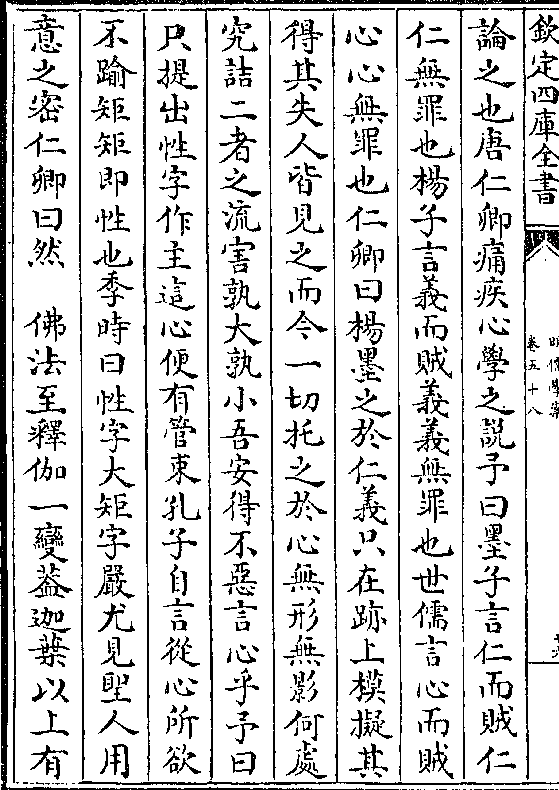 欽定四庫全書
明儒學案
卷五十八
論之也唐仁卿痛疾心學之說予曰墨子言仁而賊仁
仁無罪也楊子言義而賊義義無罪也世儒言心而賊
心心無罪也仁卿曰楊墨之於仁義只在跡上模擬其
得其失人皆見之而今一切托之於心無形無影何處
究詰二者之流害孰大孰小吾安得不惡言心乎予曰
只提出性字作主這心便有管束孔子自言從心所欲
不踰矩矩即性也季時曰性字大矩字嚴尤見聖人用
意之密仁卿曰然　佛法至釋伽一變葢迦葉以上有